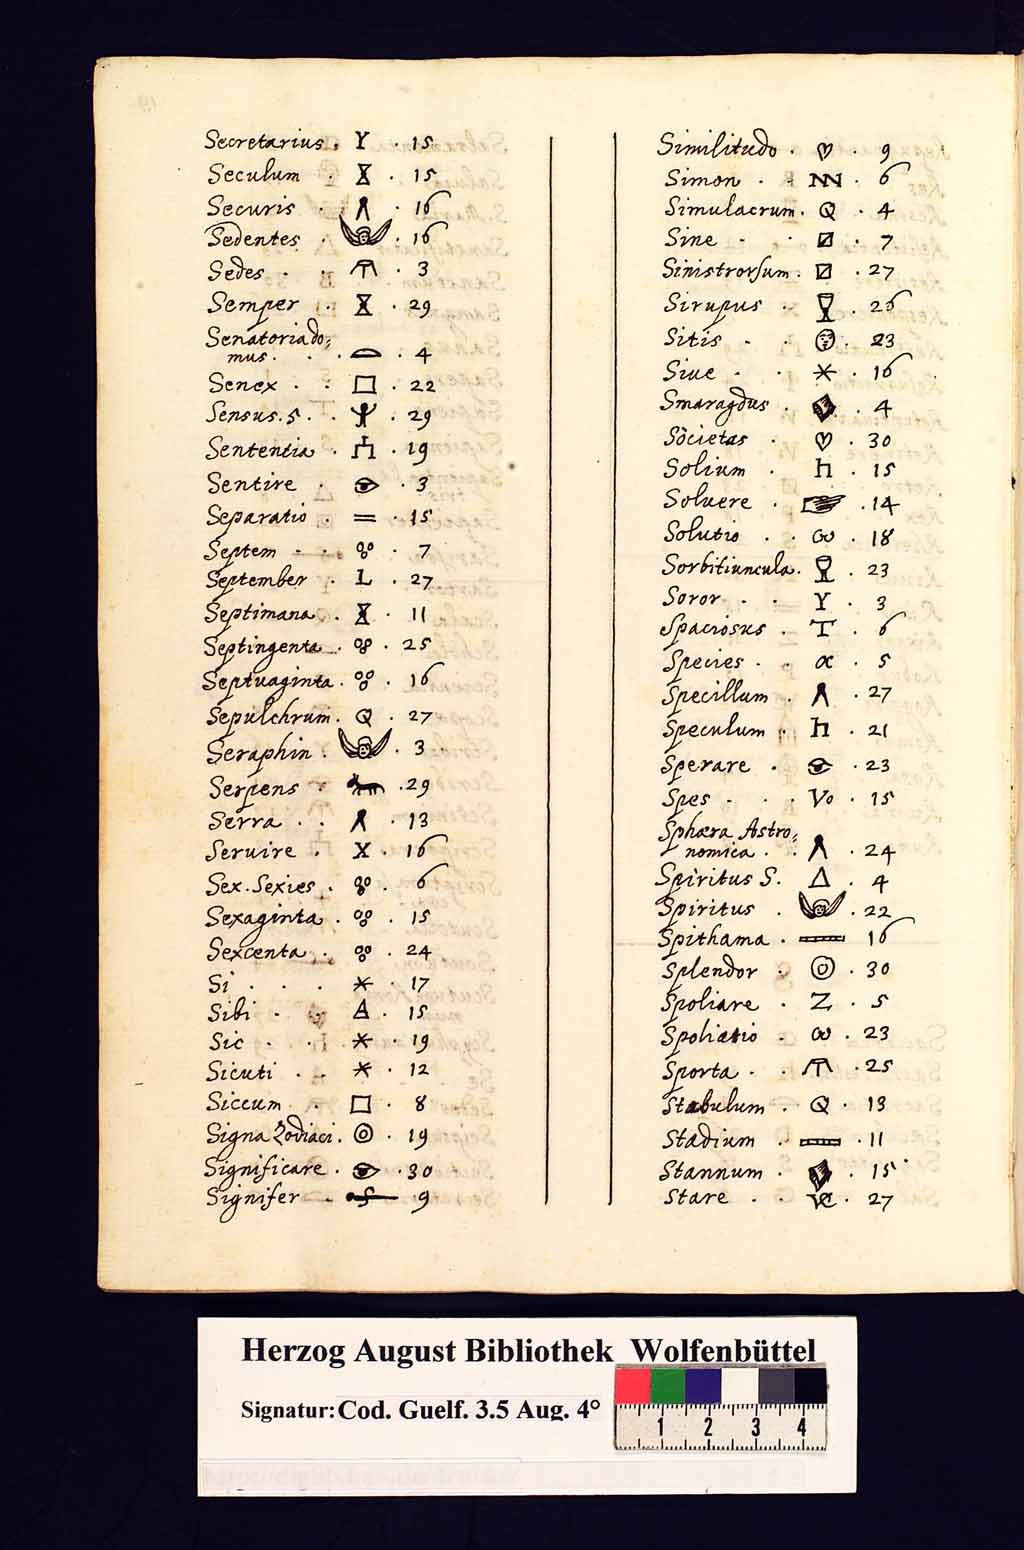 Secretarius. Y . 15
Seculum . . 15
Securis . . 16
Sedentes . 16
Sedes . . . 3
Semper . . 29
Senatoria do:
mus . . . . 4
Senex . . . 22
Sensus. 5. . . 29
Sententia . . 19
Sentire . . 3
Separatio . = . 15
Septem . . . 7
September . L . 27
Septimana . . 11
Septingenta . . 25
Septuaginta . . 16
Sepulchrum . Q . 27
Seraphin . . 3
Serpens . . 29
Serra . . . 13
Seruire . X . 16
Sex. Sexies . . 6
Sexaginta . . 15
Sexcenta . . 24
Si . . . * . 17
Sibi . . Δ . 15
Sic . . * . 19
Sicuti . . * . 12
Siccum . . □ . 8
Signa Zodiaci . ◎ . 19
Significare . . 30
Signifer . . 9
Similitudo . ♡ . 9
Simon . . . 6
Simulacrum . Q . 4
Sine . . . 7
Sinistrorsum . . 27
Sirupus . . 26
Sitis . . . 23
Siue . . * . 16
Smaragdus . . 4
Societas . ♡ . 30
Solium . h . 15
Soluere . . 14
Solutio . . ω . 18
Sorbitiuncula . . 23
Soror . . Y . 3
Spaciosus . T . 6
Species . . α . 5
Specillum . . 27
Speculum . h . 21
Sperare . . 23
Spes . . . Vo . 15
Sphæra Astro:
nomica . . . 24
Spiritus S. . Δ . 4
Spiritus . . 22
Spithama . . 16
Splendor . ◎ . 30
Spoliare . Z . 5
Spoliatio . ω . 23
Sporta . . . 25
Stabulum . Q . 13
Stadium . . 11
Stannum . . 15
Stare . . . 27
Herzog August Bibliothek Wolfenbüttel
Signatur: Cod. Guelf. 3.5 Aug. 4°
1 2 3 4